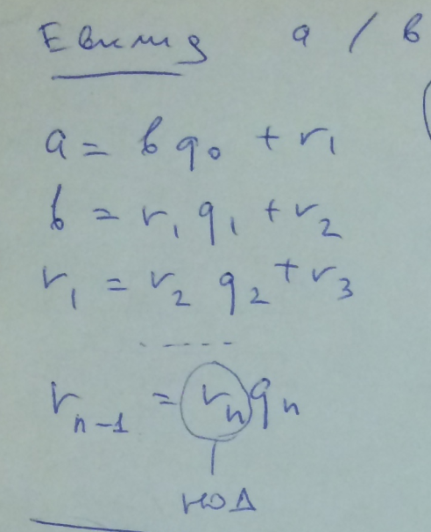 Евклид a / b
a = b q₀ + r₁
b = r₁ q₁ + r₂
r₁ = r₂ q₂ + r₃
- - - - - -
rₙ₋₁ = rₙ qₙ
НОД